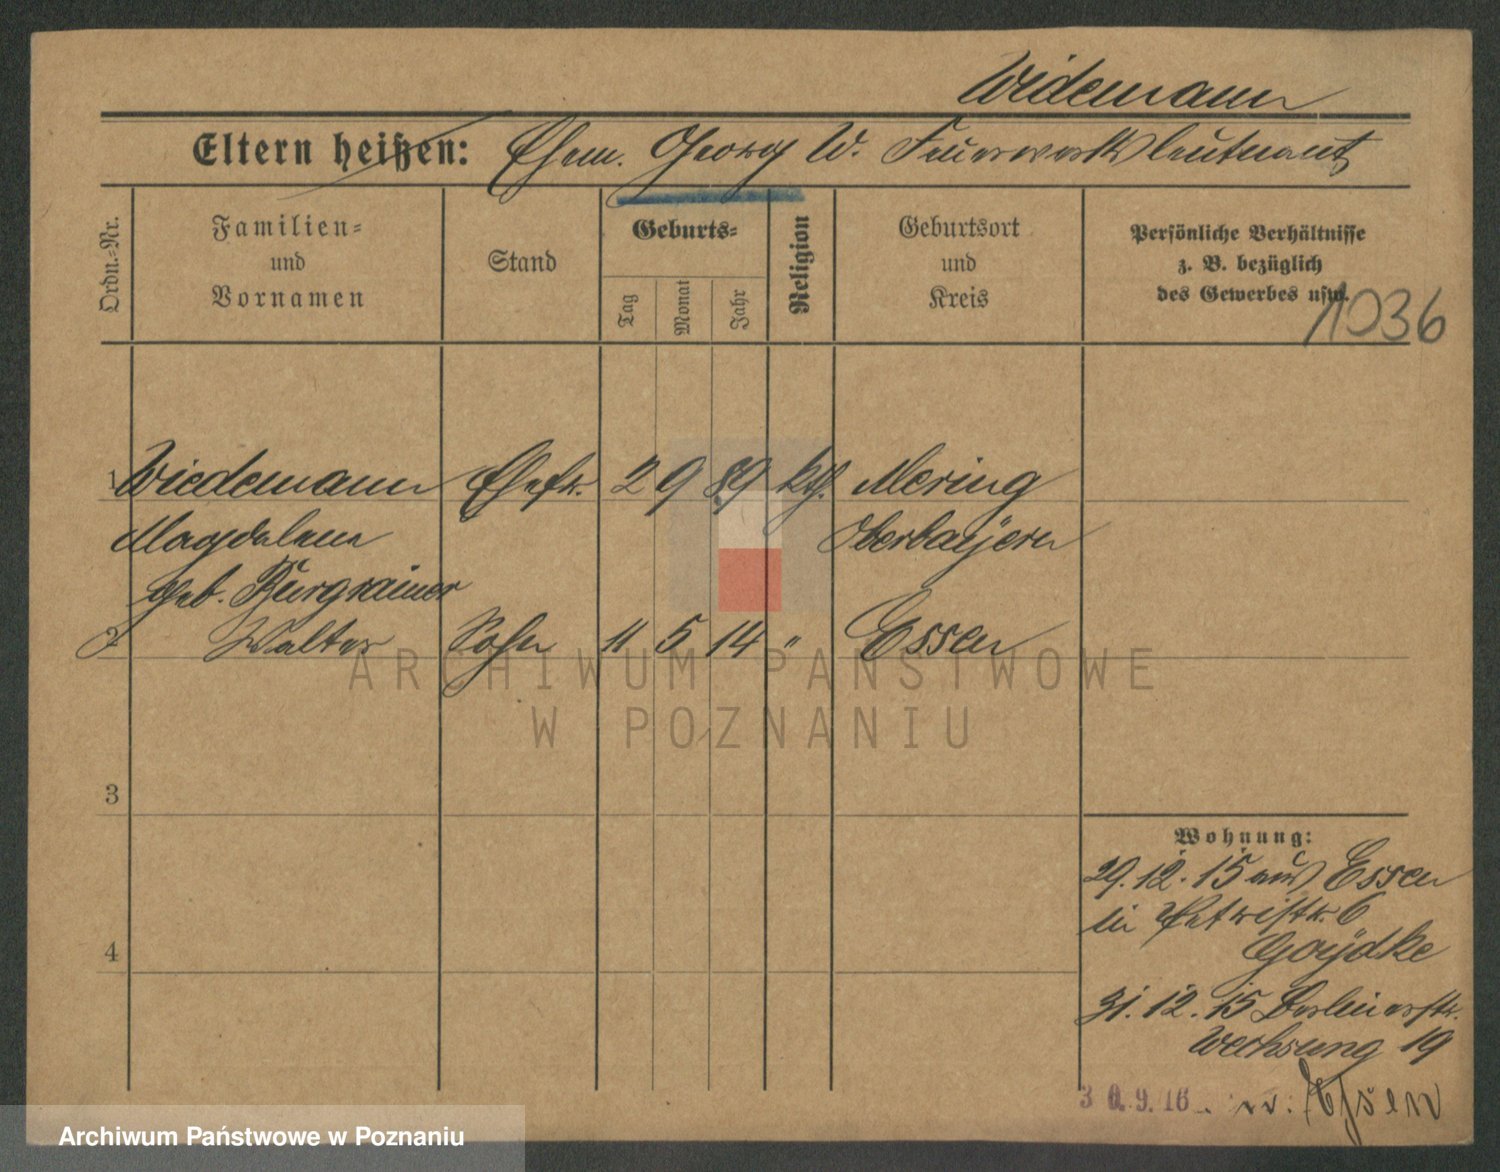 Widemann
Eltern heißen: Ehem. Georg W. Feuerwerksleutnant
Ordn.-Nr.
Familien-
und
Vornamen
Stand
Geburts-
Tag
Monat
Jahr
Religion
Geburtsort
und
Kreis
Persönliche Verhältnisse
z. B. bezüglich
des Gewerbes usw.
1036
1 Wiedemann Ehefr. 2 9 89 kth. Mering
Magdalena Oberbayern
geb. Burgrainer
2 Walter Sohn 11 5 14 " Essen
ARCHIWUM PAŃSTWOWE
W POZNANIU
3
Wohnung:
29.12.15 aus Essen
in Petristr. 6
Goydke
4
31.12.15 Berlinerstr.
Wechsung 19
30.9.16. n. Essen
Archiwum Państwowe w Poznaniu